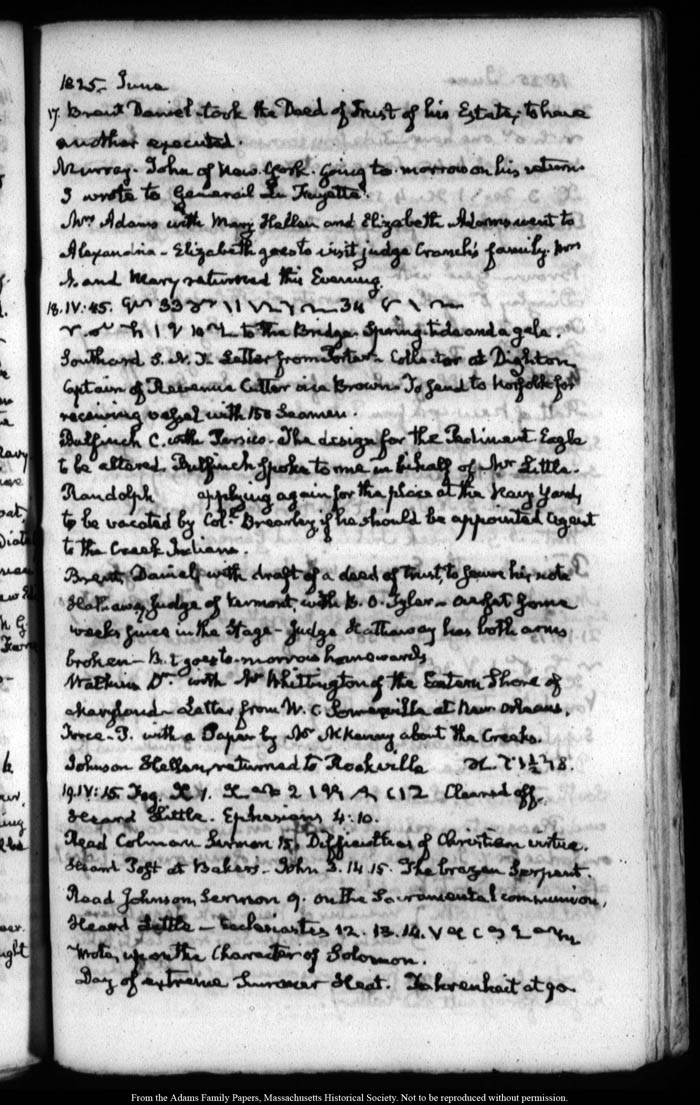 1825. June
17. Brent Daniel took the Deed of Trust of his Estate, to have
another executed.
Murray. John of New York. going to-morrow on his return.
I wrote to General La Fayette.
Mrs Adams with Mary Hellen and Elizabeth Adams went to
Alexandria - Elizabeth goes to visit judge Cranch's family. Mrs
A. and Mary returned this Evening.
18. IV: 45.
to the Bridge. Spring tide and a gale.
Southard S. N. Letter from Porter Collector at Dighton,
Captain of Revenue Cutter vice Brown. To send to Norfolk for
receiving vessel with 150 Seamen.
Bulfinch C. with Persico. The design for the Pediment Eagle
to be altered. Bulfinch spoke to me in behalf of Mr Little.
Randolph applying again for the place at the Navy Yard,
to be vacated by Col. Brearley, if he should be appointed Agent
to the Creek Indians.
Brent, Daniel, with draft of a deed of trust, to secure his note
Hathaway, Judge of Vermont, with B. O. Tyler - overset some
weeks since in the Stage - Judge Hathaway has both arms
broken - B. T goes to-morrow homewards
Watkins Dr. with Mr Whittington of the Eastern Shore of
Maryland - Letter from W. C. Somerville at New Orleans.
with a Paper by Mr McKenney about the Creeks.
Johnson Hellen, returned to Rockville
19. IV: 15. Fog. Cleared off.
Heard Little. Ephesians 4. 10.
Read Colman Sermon 15. Difficulties of Christian virtue.
Heard Post at Baker's. John 3. 14. 15. The brazen Serpent.
Read Johnson, Sermon 9. on the Sacramental communion,
Heard Little - Ecclesiastes 12. 13. 14.
Wrote, upon the Character of Solomon.
Day of extreme Summer Heat. Fahrenheit at 90
From the Adams Family Papers, Massachusetts Historical Society. Not to be reproduced without permission.